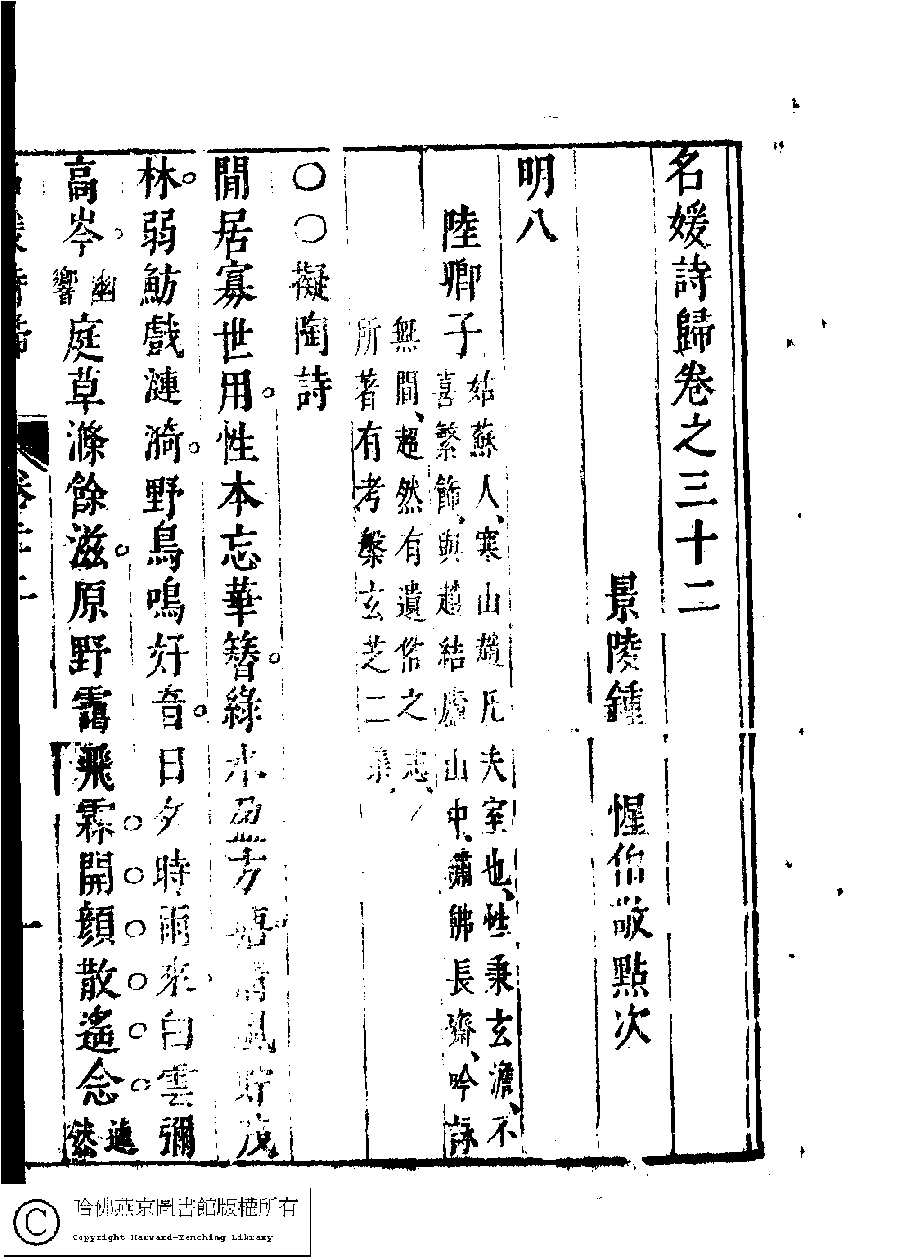 名媛詩歸卷之三十二
景陵鍾　惺伯敬點次
明八
陸卿子
姑蘇人、寒山趙凡夫室也、性秉玄澹、不
喜繁飾、與趙結廬山中、繡佛長齋、吟詠
無間、超然有遺俗之志、
所著有考槃玄芝二集、
〇〇擬陶詩
閒居寡世用。性本忘華簪。綠水盈芳塘。清風貯茂
林。弱魴戲漣漪。野鳥鳴好音。日夕時雨來。白雲彌
高岑。幽響庭草滌餘滋。原野靄飛霖。開顏散遙念。遠然
哈佛燕京圖書館版權所有
Copyright Harvard-Yenching Library